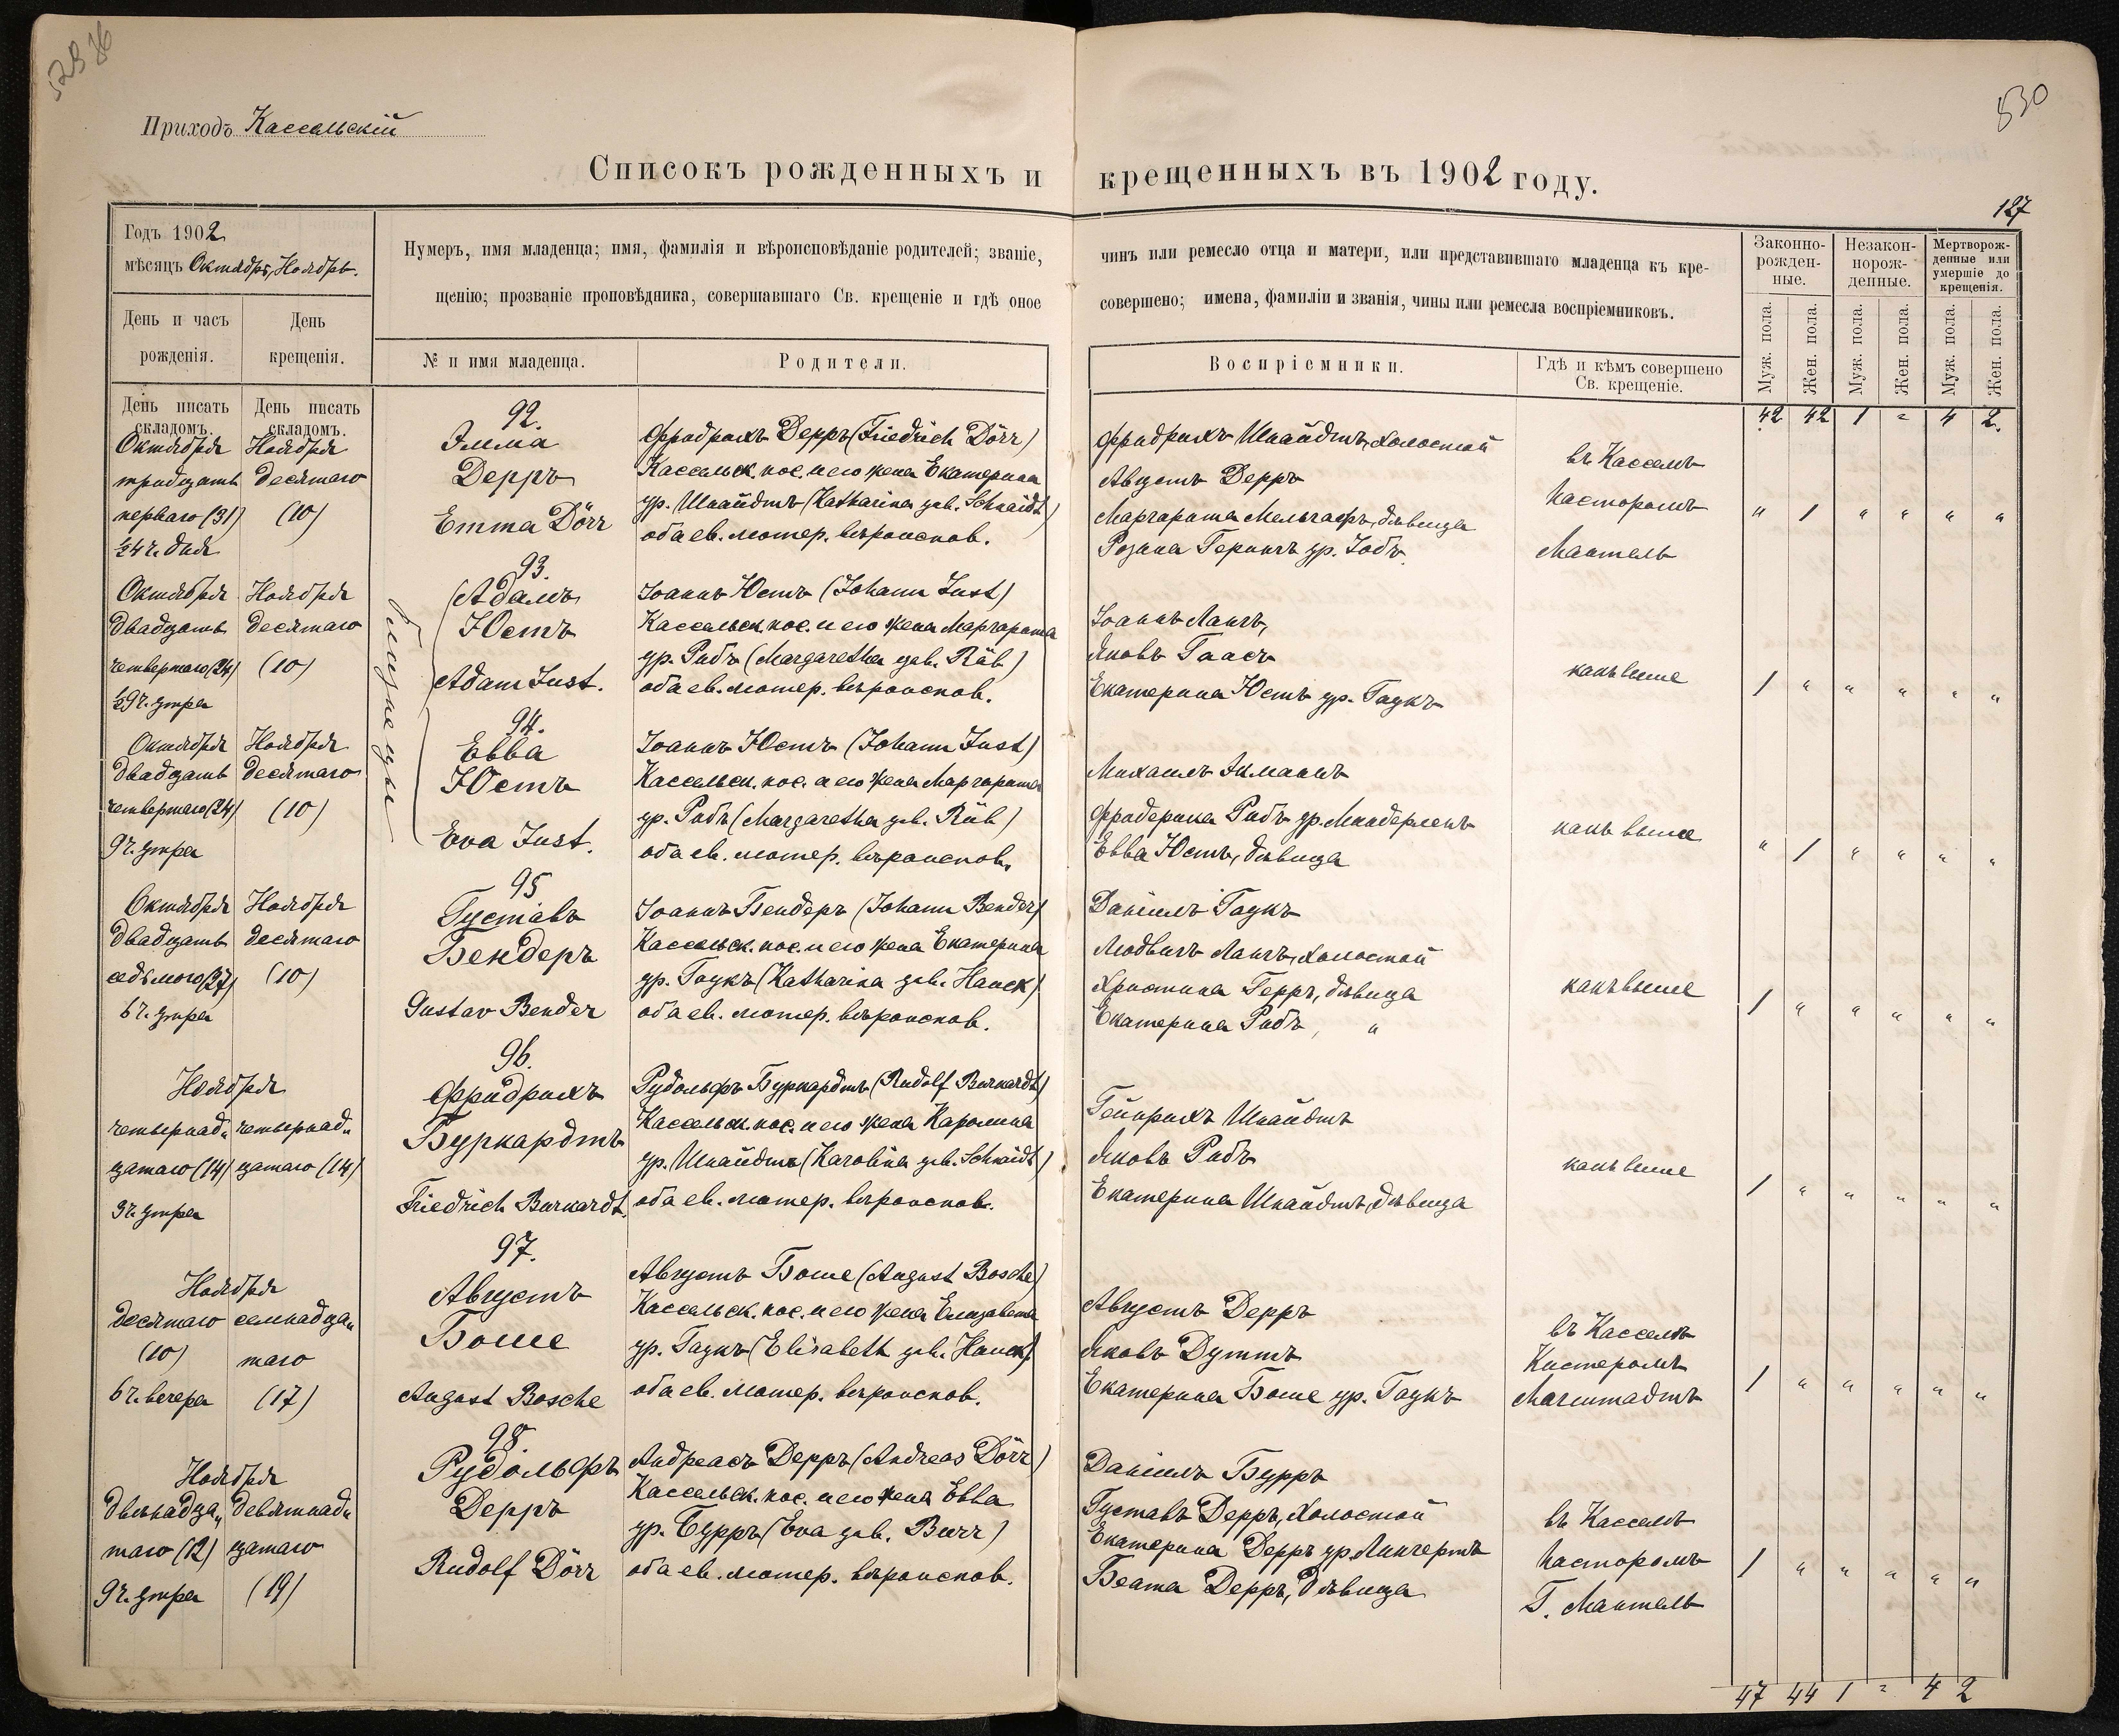 Приходъ Кассельскій
530
Списокъ рожденныхъ и крещенныхъ въ 1902 году.
127
Годъ 1902
мѣсяцъ Октябрь, Ноябрь.
День и часъ рожденія.
День крещенія.
Нумеръ, имя младенца; имя, фамилія и вѣроисповѣданіе родителей; званіе, чинъ или ремесло отца и матери, или представившаго младенца къ кре-
щенію; прозваніе проповѣдника, совершавшаго Св. крещеніе и гдѣ оное совершено; имена, фамиліи и званія, чины или ремесла воспріемниковъ.
№ и имя младенца.
Родители.
Воспріемники.
Гдѣ и кѣмъ совершено
Св. крещеніе.
Законно-
рожден-
ные.
Незакон-
норож-
денные.
Мертворож-
денные или
умершіе до
крещенія.
Муж. пола.
Жен. пола.
Муж. пола.
Жен. пола.
Муж. пола.
Жен. пола.
День писать
складомъ.
День писать
складомъ.
42 42 1 = 4 2.
Октября
тридцать
перваго (31)
½4 ч. дня
Ноября
десятаго
(10)
92.
Эмма
Дерръ
Emma Dörr
Фридрихъ Дерръ (Friedrich Dörr)
Кассельск. пос. и его жена Екатерина
ур. Шнайдтъ (Katharina geb. Schnaidt)
оба ев. лютер. вѣроиспов.
Фридрихъ Шнайдтъ, холостой
Августъ Дерръ
Маргарета Мельгафъ, дѣвица
Розина Герингъ ур. Іобъ.
въ Касселѣ
пасторомъ
Мантель
" 1 " " " "
близнецы
Октября
двадцать
четвертаго (24)
½9 ч. утра
Ноября
десятаго
(10)
93.
Адамъ
Юстъ
Adam Just.
Іоаннъ Юстъ (Johann Just)
Кассельск. пос. и его жена Маргарета
ур. Рибъ (Margaretha geb. Rüb)
оба ев. лютер. вѣроиспов.
Іоаннъ Лангъ,
Яковъ Гаасъ
Екатерина Юстъ ур. Гаукъ
какъ выше
1 " " " " "
Октября
двадцать
четвертаго (24)
9 ч. утра
Ноября
десятаго
(10)
94.
Евва
Юстъ
Eva Just.
Іоаннъ Юстъ (Johann Just)
Кассельск. пос. и его жена Маргарета
ур. Рибъ (Margaretha geb. Rüb)
оба ев. лютер. вѣроиспов.
Михаилъ
Фридерика Рибъ ур.
Евва Юстъ, дѣвица
какъ выше
" 1 " " " "
Октября
двадцать
седьмого (27)
6 ч. утра
Ноября
десятаго
(10)
95
Густавъ
Бендеръ
Gustav Bender
Іоаннъ Бендеръ (Johann Bender)
Кассельск. пос. и его жена Екатерина
ур. Гаукъ (Katharina geb. Hauck)
оба ев. лютер. вѣроиспов.
Даніилъ Гаукъ
Людвигъ Лангъ, холостой
Христина Герръ, дѣвица
Екатерина Рибъ, "
какъ выше
1 " " " " "
Ноября
четвернад"
цатаго (14)
3 ч. утра
четвернад"
цатаго (14)
96.
Фридрихъ
Буркардтъ
Friedrich Burkardt.
Рудольфъ Буркардтъ (Rudolf Burkardt)
Кассельск. пос. и его жена Каролина
ур. Шнайдтъ (Karolina geb. Schnaidt)
оба ев. лютер. вѣроиспов.
Гейнрихъ Шнайдтъ
Яковъ Рибъ
Екатерина Шнайдтъ, дѣвица
какъ выше
1 " " " " "
Ноября
десятаго
(10)
6 ч. вечера
семнадца"
таго
(17)
97.
Августъ
Боше
August Bosche
Августъ Боше (August Bosche)
Кассельск. пос. и его жена Елизавета
ур. Гаукъ (Elisabeth geb. Hauck)
оба ев. лютер. вѣроиспов.
Августъ Дерръ
Яковъ Дуттъ
Екатерина Боше ур. Гаукъ
въ Касселѣ
Кистеромъ
Магштадтъ
1 " " " " "
Ноября
двѣнадца"
таго (12)
9 ч. утра
девятнад"
цатаго
(19)
98.
Рудольфъ
Дерръ
Rudolf Dörr
Андреасъ Дерръ (Andreas Dörr)
Кассельск. пос. и его жена Евва
ур. Бурръ (Eva geb. Burr)
оба ев. лютер. вѣроиспов.
Даніилъ Бурръ
Густавъ Дерръ, холостой
Екатерина Дерръ ур. Лингертъ
Беата Дерръ, дѣвица
въ Касселѣ
пасторомъ
Г. Мантель
1 " " " " "
47 44 1 = 4 2